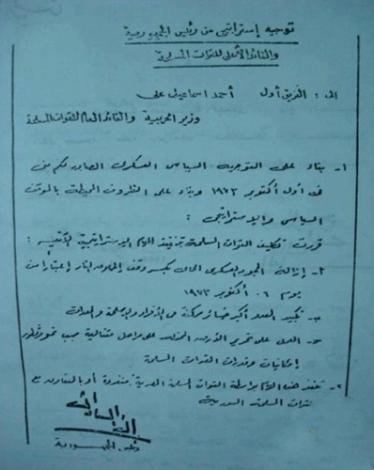 توجيه إستراتيجى من رئيس الجمهورية
والقائد الأعلى للقوات المسلحة
إلى : الفريق أول أحمد اسماعيل على
وزير الحربية والقائد العام للقوات المسلحة
١- بناء على التوجيه السياسى العسكرى الصادر لكم منى
فى أول أكتوبر ١٩٧٣ وبناء على الظروف المحيطة بالموقف
السياسى والإستراتيجى :
قررت تكليف القوات المسلحة بتنفيذ المهام الإستراتيجية الآتية :
أ- إزالة الجمود العسكرى الحالى بكسر وقف إطلاق النار إعتبارا من
يوم ٦ أكتوبر ١٩٧٣
ب- تكبيد العدو أكبر خسائر ممكنة فى الأفراد والأسلحة والمعدات
ج- العمل على تحرير الأرض المحتلة على مراحل متتالية حسب نمو وتطور
إمكانيات وقدرات القوات المسلحة
٢- تنفذ هذه المهام بواسطة القوات المسلحة المصرية منفردة أو بالتعاون مع
القوات المسلحة السورية
رئيس الجمهورية